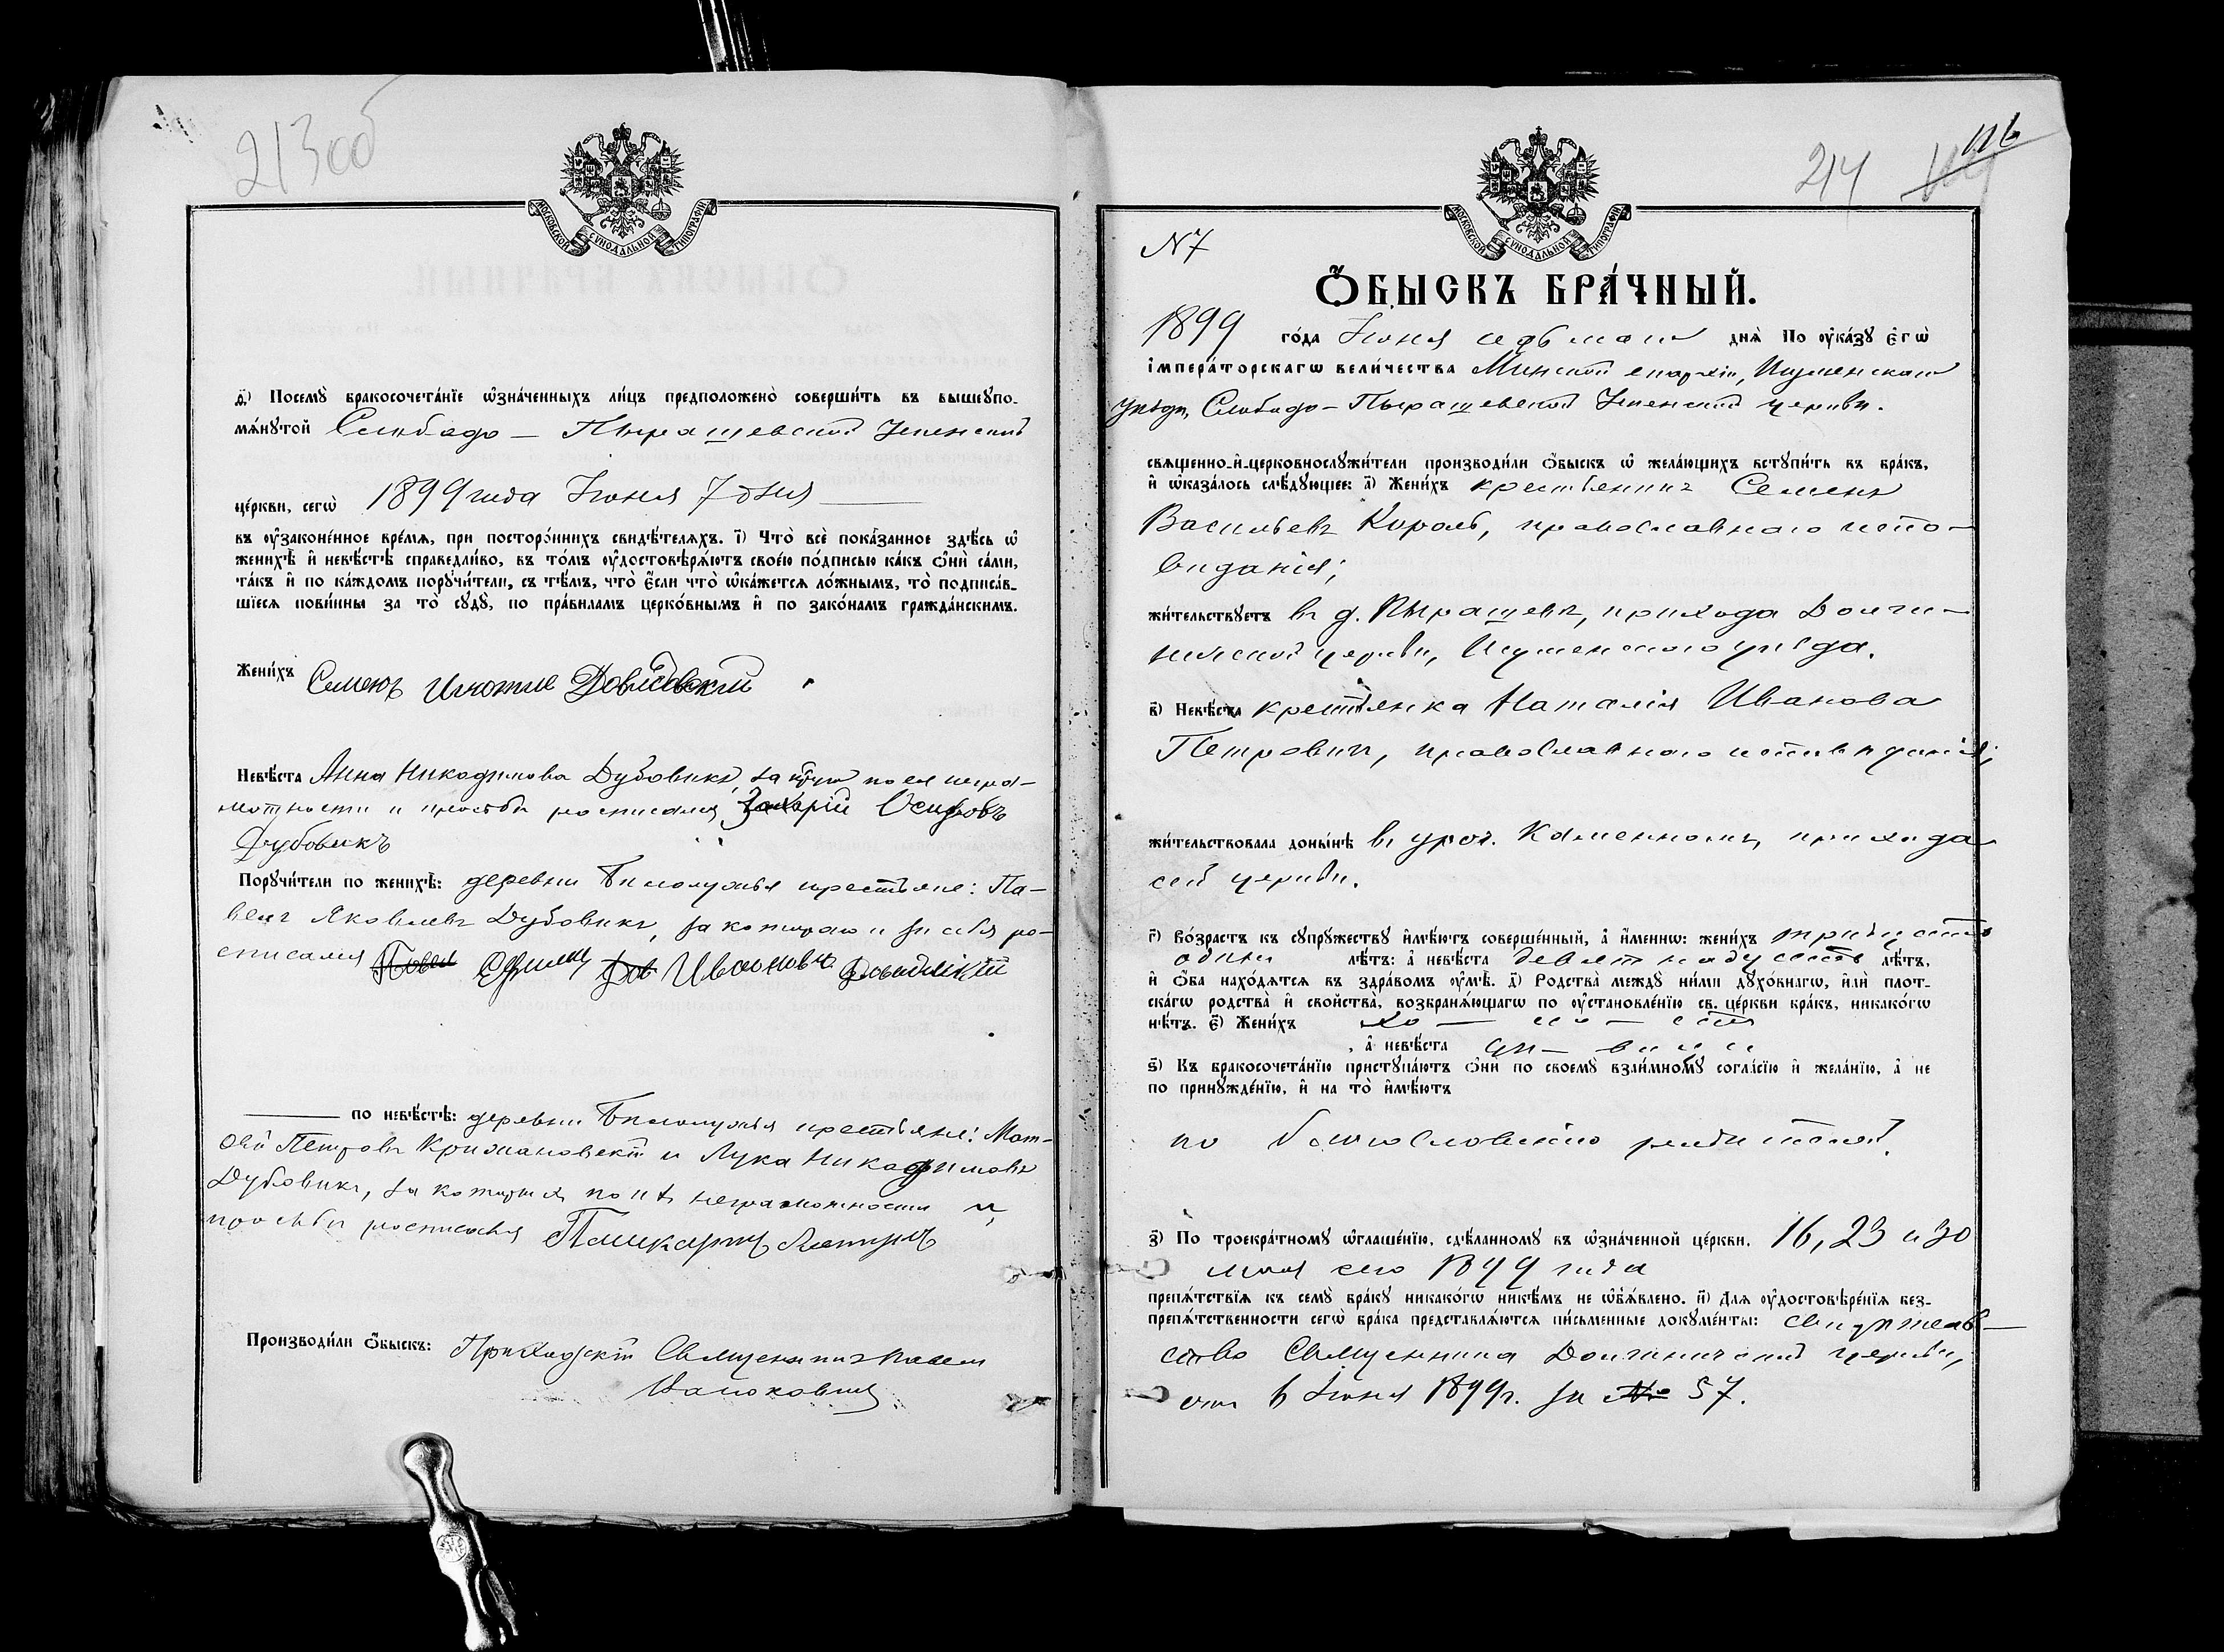 213об
МОСКОВСКОЙ СѴНОДАЛЬНОЙ ТИПОГРАФІИ
д҃) Посемꙋ̀ бракосочета́нїе ѡ҆зна́ченныхъ ли́цъ предположено̀ соверши́ть въ вышеꙋпо-
мѧ́нꙋтой Слободо - Пырашевской Успенской
це́ркви, сегѡ̀ 1899 года Іюня 7 дня
въ ᲂу҆законе́нное вре́мѧ, при посторо́ннихъ свидѣ́телѧхъ. і҃) Что̀ всѐ пока́занное здѣ́сь ѡ҆
женихѣ̀ и҆ невѣ́стѣ справедли́во, въ то́мъ ᲂу҆достовѣрѧ́ютъ свое́ю по́дписью ка́къ ѻ҆нѝ са́ми,
та́къ и҆ по ка́ждомъ порꙋчи́тели, съ тѣ́мъ, что̀ є҆́сли что̀ ѡ҆ка́жетсѧ ло́жнымъ, то̀ подписа́в-
шїесѧ пови́нны за то̀ сꙋдꙋ̀, по пра́виламъ церко́внымъ и҆ по зако́намъ гражда́нскимъ.
Жени́хъ Семенъ
Невѣ́ста Анна Никодимова Дубовикъ, за которую по ея негра-
мотности и просьбѣ росписался Захарій Осиповъ
Дубовикъ
Порꙋчи́тели по женихѣ̀: деревни крестьяне: Па-
велъ Яковлевъ Дубовикъ, за котораго и за себя ро-
списался Ивановъ
по невѣ́стѣ: деревни крестьяне: Мат-
ѳей Петровъ Крижановскій и Лука Никодимовъ
Дубовикъ, за которыхъ по ихъ неграмотности и
просьбѣ росписался
Производи́ли ѻ҆́быскъ: Приходскій Священникъ Павелъ
214 116
МОСКОВСКОЙ СѴНОДАЛЬНОЙ ТИПОГРАФІИ
N7
Ѻ҆́БЫСКЪ БРА́ЧНЫЙ.
1899 го́да Іюня седьмаго днѧ̀ По ᲂу҆ка́зꙋ Є҆гѡ̀
І҆мпера́торскагѡ вели́чества Минской епархіи, Игуменскаго
уѣзда, Слободо - Пырашевской Успенской церкви.
свѧще́нно-и҆-церковнослꙋжи́тели производи́ли ѻ҆́быскъ ѡ҆ жела́ющихъ встꙋпи́ть въ бра́къ,
и҆ ѡ҆каза́лось слѣ́дꙋющее: а҃) Жени́хъ крестьянинъ Семенъ
Васильевъ Король, православнаго испо-
вѣданія;
жи́тельствꙋетъ въ д. Пырашевѣ, прихода Долги-
ничской церкви, Игуменскаго уѣзда.
в҃) Невѣ́ста крестьянка Наталія Иванова
Петровичъ, православнаго исповѣданія;
жи́тельствовала доны́нѣ въ уроч. Каменномъ, прихода
сей церкви.
г҃) Во́зрастъ къ сꙋпрꙋ́жествꙋ и҆мѣ́ютъ соверше́нный, а҆ и҆́меннѡ: жени́хъ тридцать
одинъ лѣ́тъ: а҆ невѣ́ста девятнадцать лѣ́тъ,
и҆ ѻ҆́ба нахо́дѧтсѧ въ здра́вомъ ᲂу҆мѣ̀. д҃) Родства̀ междꙋ̀ ни́ми дꙋхо́внагѡ, и҆лѝ плот-
ска́гѡ родства̀ и҆ сво́йства, возбранѧ́ющагѡ по ᲂу҆становле́нїю св. це́ркви бра́къ, никако́гѡ
нѣ́тъ. є҃) Жени́хъ хо - ло - стъ
, а҆ невѣ́ста дѣ - вица
ѕ҃) Къ бракосочета́нїю пристꙋпа́ютъ ѻ҆нѝ по своемꙋ̀ взаи́мномꙋ согла́сїю и҆ жела́нїю, а҆ не
по принꙋжде́нїю, и҆ на то̀ и҆мѣ́ютъ
по благословенію родителей.
з҃) По троекра́тномꙋ ѡ҆глаше́нїю, сдѣ́ланномꙋ въ ѡ҆зна́ченной це́ркви, 16, 23 и 30
мая сего 1899 года
препѧ́тствїѧ къ семꙋ̀ бра́кꙋ никако́гѡ нике́мъ не ѡ҆б̾ѧ́влено. и҃) Длѧ ᲂу҆достовѣре́нїѧ без-
препѧ́тственности сегѡ̀ бра́ка представлѧ́ютсѧ пи́сьменные докꙋме́нты: свидѣтель-
ство Священника Долгиничской церкви,
отъ 6 Іюня 1899 г. за № 57.